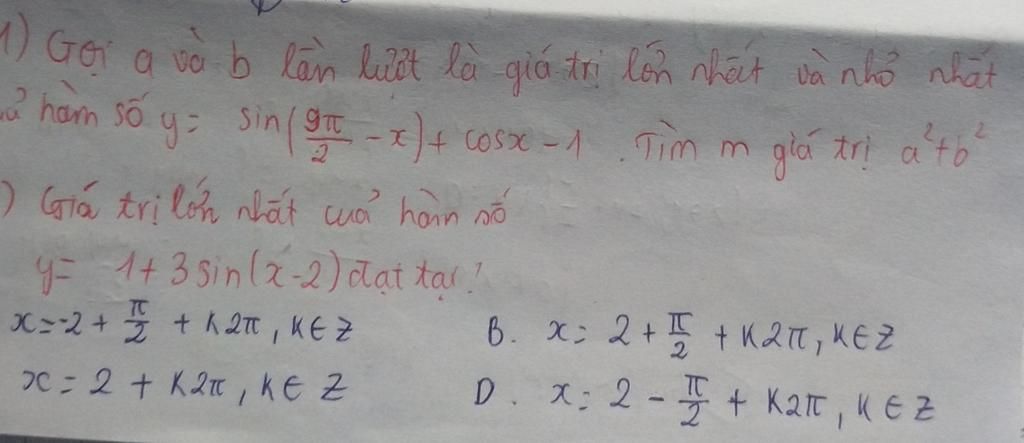 1) Gọi a và b lần lượt là giá trị lớn nhất và nhỏ nhất
ủa hàm số y = sin(9π/2 - x) + cosx - 1. Tìm m giá trị a²+b²
) Giá trị lớn nhất cuả hàm số
y = 1 + 3 sin(x-2) đạt tại?
x = -2 + π/2 + K2π, K ∈ Z B. x = 2 + π/2 + K2π, K ∈ Z
x = 2 + K2π, K ∈ Z D. x = 2 - π/2 + K2π, K ∈ Z